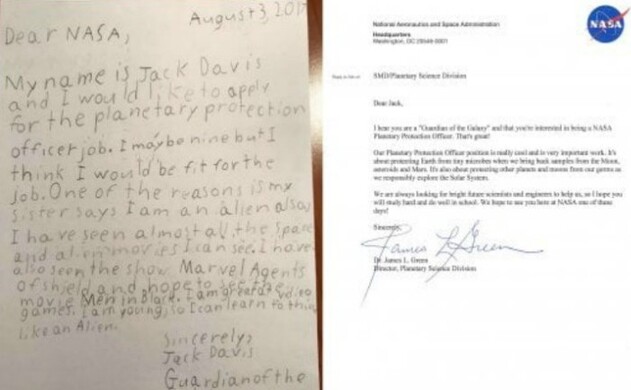 August 3, 2017
Dear NASA,
My name is Jack Davis
and I would like to apply
for the planetary protection
officer job. I may be nine but I
think I would be fit for the
job. One of the reasons is my
sister says I am an alien also
I have seen almost all the space
and alien movies I can see. I have
also seen the show Marvel Agents
of shield and hope to see the
movie Men in Black. I am great at video
games. I am young, so I can learn to think
like an Alien.
Sincerely,
Jack Davis
Guardian of the
National Aeronautics and Space Administration
Headquarters
Washington, DC 20546-0001
NASA
Reply to Attn of:
SMD/Planetary Science Division
Dear Jack,
I hear you are a "Guardian of the Galaxy" and that you're interested in being a NASA
Planetary Protection Officer. That's great!
Our Planetary Protection Officer position is really cool and is very important work. It's
about protecting Earth from tiny microbes when we bring back samples from the Moon,
asteroids and Mars. It's also about protecting other planets and moons from our germs as
we responsibly explore the Solar System.
We are always looking for bright future scientists and engineers to help us, so I hope you
will study hard and do well in school. We hope to see you here at NASA one of these
days!
Sincerely,
James L Green
Dr. James L. Green
Director, Planetary Science Division